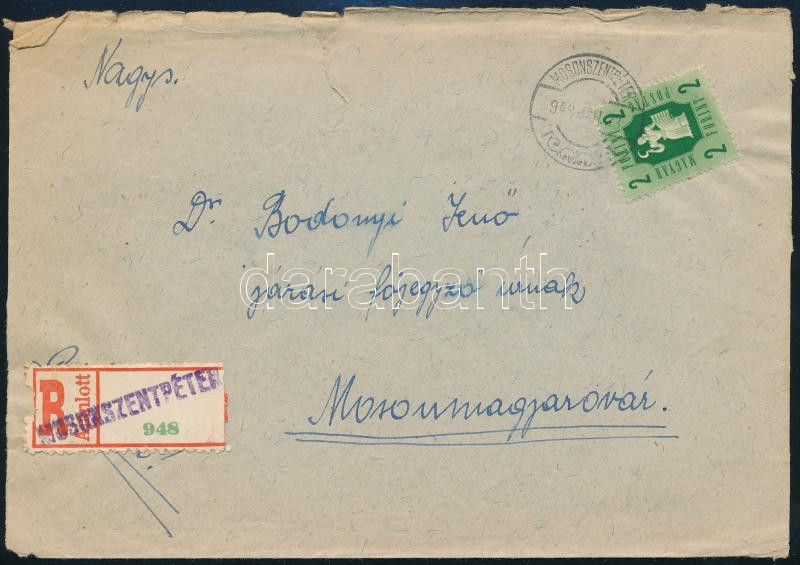 Nagys.
MOSONSZENTPÉTER
2 FORINT 2
MAGYAR POSTA
2 2
Dr. Bodonyi Jenő
járási főjegyző úrnak
darabanth
R
Ajánlott
MOSONSZENTPÉTER
948
Mosonmagyaróvár.